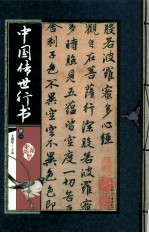 中国传世行书
般若波羅蜜多心經
觀自在菩薩行深般若
多時照見五蘊皆空度一切苦
舍利子色不異空空不異色色即